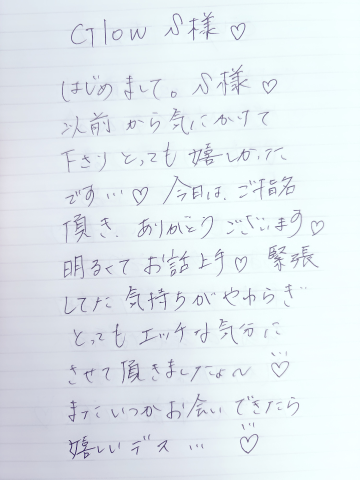 Glow S様♡
はじめまして。S様♡
以前から気にかけて
下さりとっても嬉しかった
です…♡ 今日は、ご指名
頂き、ありがとうございます♡
明るくてお話上手♡ 緊張
してた気持ちがやわらぎ
とってもエッチな気分に
させて頂きましたょ〜♡
またいつかお会いできたら
嬉しいデス…♡